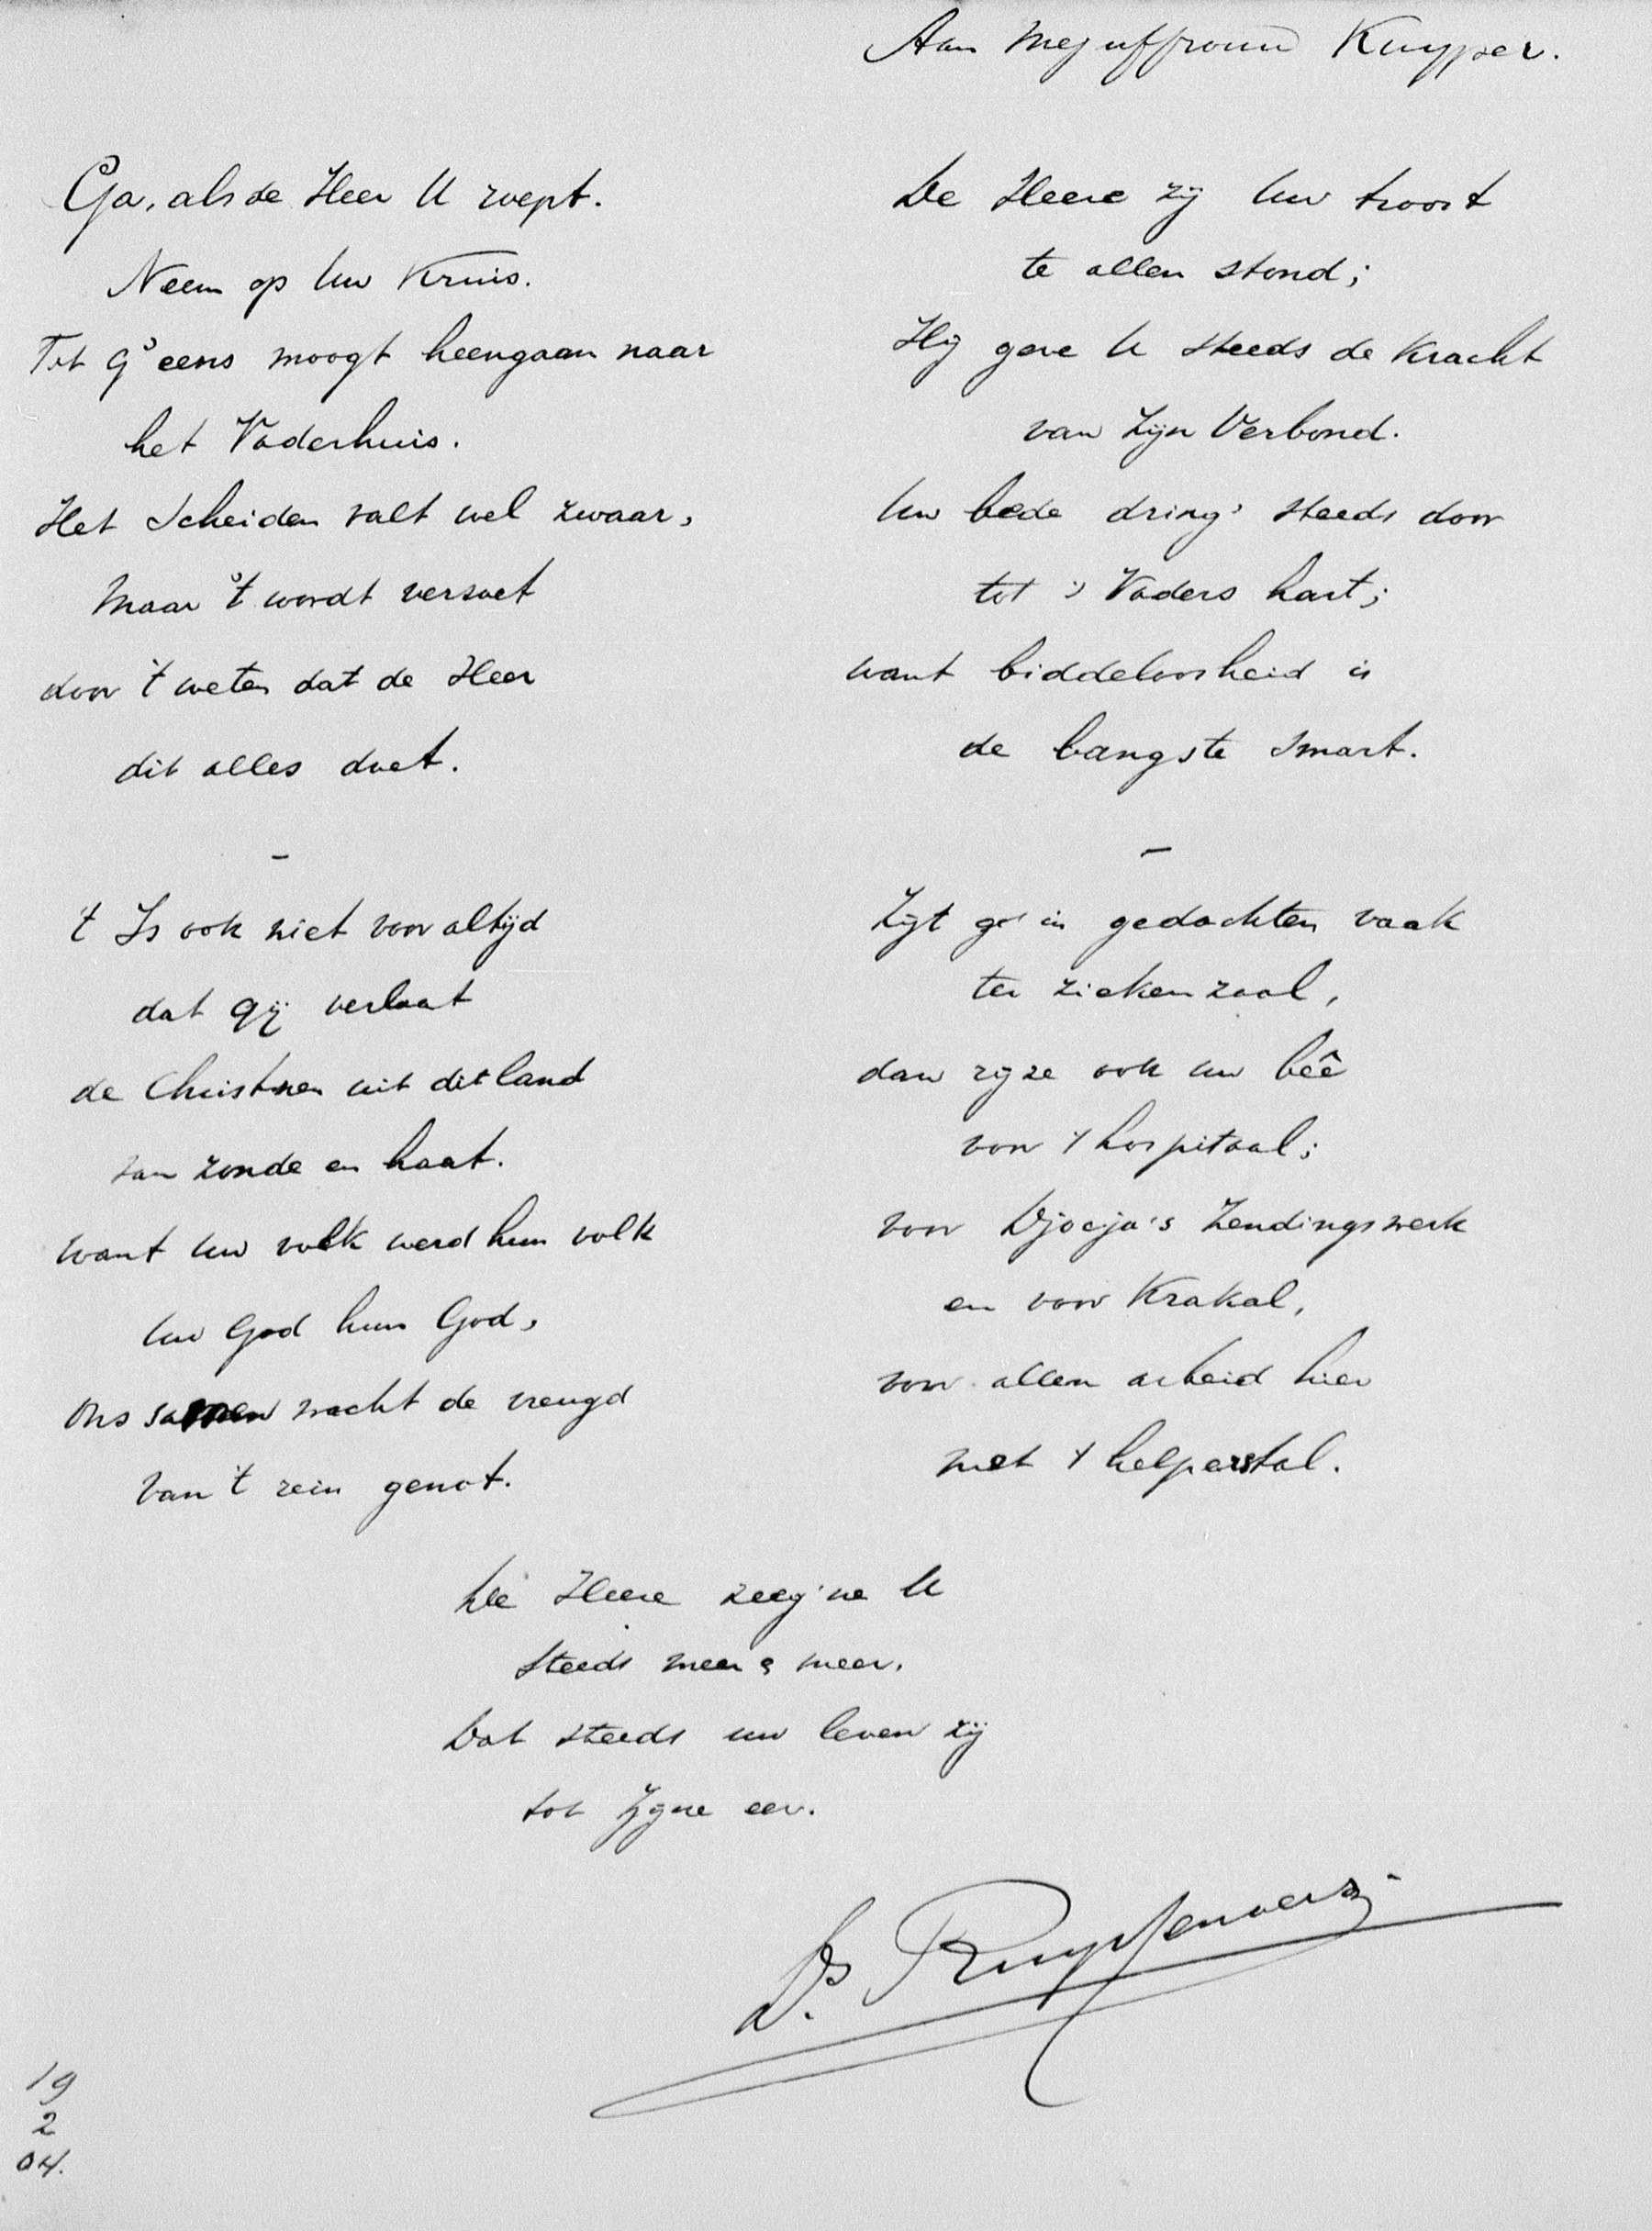 Aan Mejuffrouw Kuyper.
Ga, als de Heer U roept.
Neem op Uw Kruis.
Tot g' eens moogt heengaan naar
het Vaderhuis.
Het Scheiden valt wel zwaar,
Maar 't wordt verzoet
door 't weten dat de Heer
dit alles doet.
-
't Is ook niet voor altijd
dat gij verlaat
de Christnen uit dit land
van zonde en haat.
Want Uw volk werd hun volk
Uw God hun God,
Ons samen wacht de vreugd
Van 't rein genot.
De Heere zij Uw troost
te allen stond;
Hij geve U steeds de Kracht
van Zijn Verbond.
Uw bede dring' steeds door
tot 's Vaders hart;
want biddeloosheid is
de bangste smart.
-
Zijt ge in gedachten vaak
ter ziekenzaal,
dan rijze ook uw beê
voor 't hospitaal;
voor Djocja's Zendingswerk
en voor Krakal,
voor allen arbeid hier
met 't helperstal.
De Heere zeeg'ne U
Steeds meer & meer.
Dat steeds uw leven zij
tot Zijne eer.
Ds. Ruyssenaers
19
2
04.